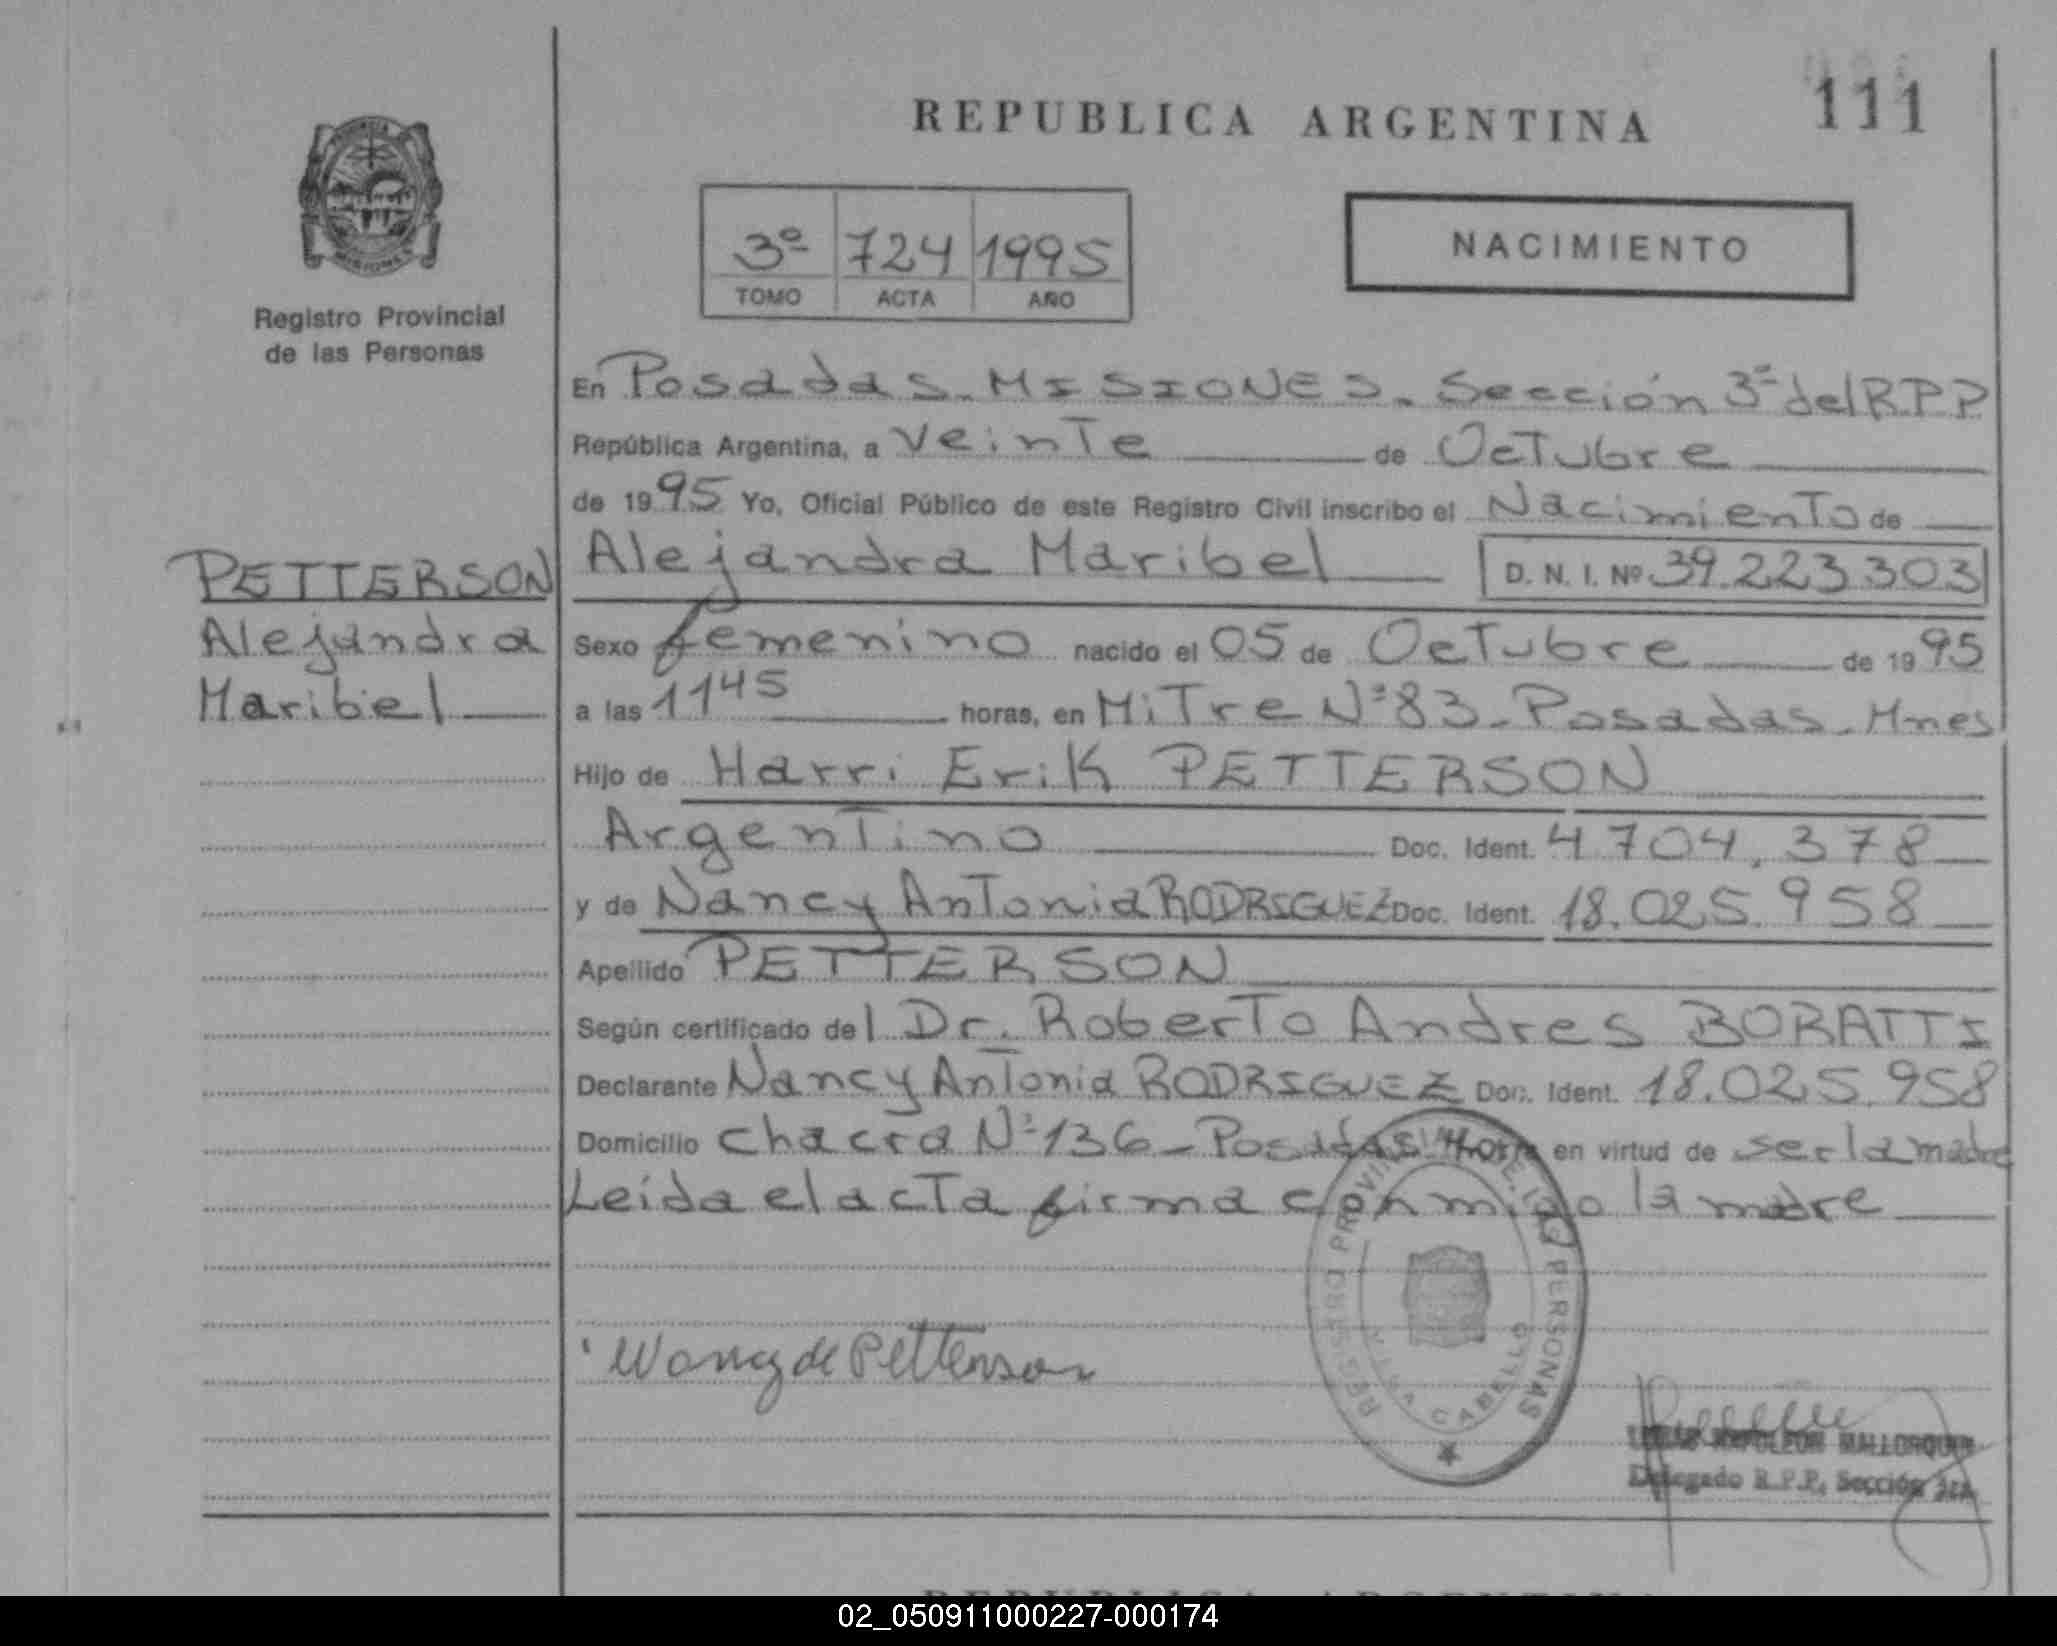 REPUBLICA ARGENTINA
111
3º 724 1995
TOMO ACTA AÑO
NACIMIENTO
MISIONES
Registro Provincial
de las Personas
PETTERSON
Alejandra
Maribel
En Posadas - MISIONES - Sección 3ª del RPP
República Argentina, a Veinte de Octubre
de 1995 Yo, Oficial Público de este Registro Civil inscribo el Nacimiento de
Alejandra Maribel D. N. I. Nº 39.223.303
Sexo femenino nacido el 05 de Octubre de 1995
a las 1145 horas, en Mitre Nº 83 - Posadas - Mnes
Hijo de Harri Erik PETTERSON
Argentino Doc. Ident. 4704.378
y de Nancy Antonia RODRIGUEZ Doc. Ident. 18.025.958
Apellido PETTERSON
Según certificado del Dr. Roberto Andres BORATTI
Declarante Nancy Antonia RODRIGUEZ Doc. Ident. 18.025.958
Domicilio Chacra Nº 136 - Posadas en virtud de ser la madre
Leída el acta firma conmigo la madre
REGISTRO PROVINCIAL DE LAS PERSONAS
VILLA CABELLO
Nancy de Petterson
NAPOLEON MALLORQUIN
Delegado R.P.P. Sección 3ra
REPUBLICA ARGENTINA
02_050911000227-000174